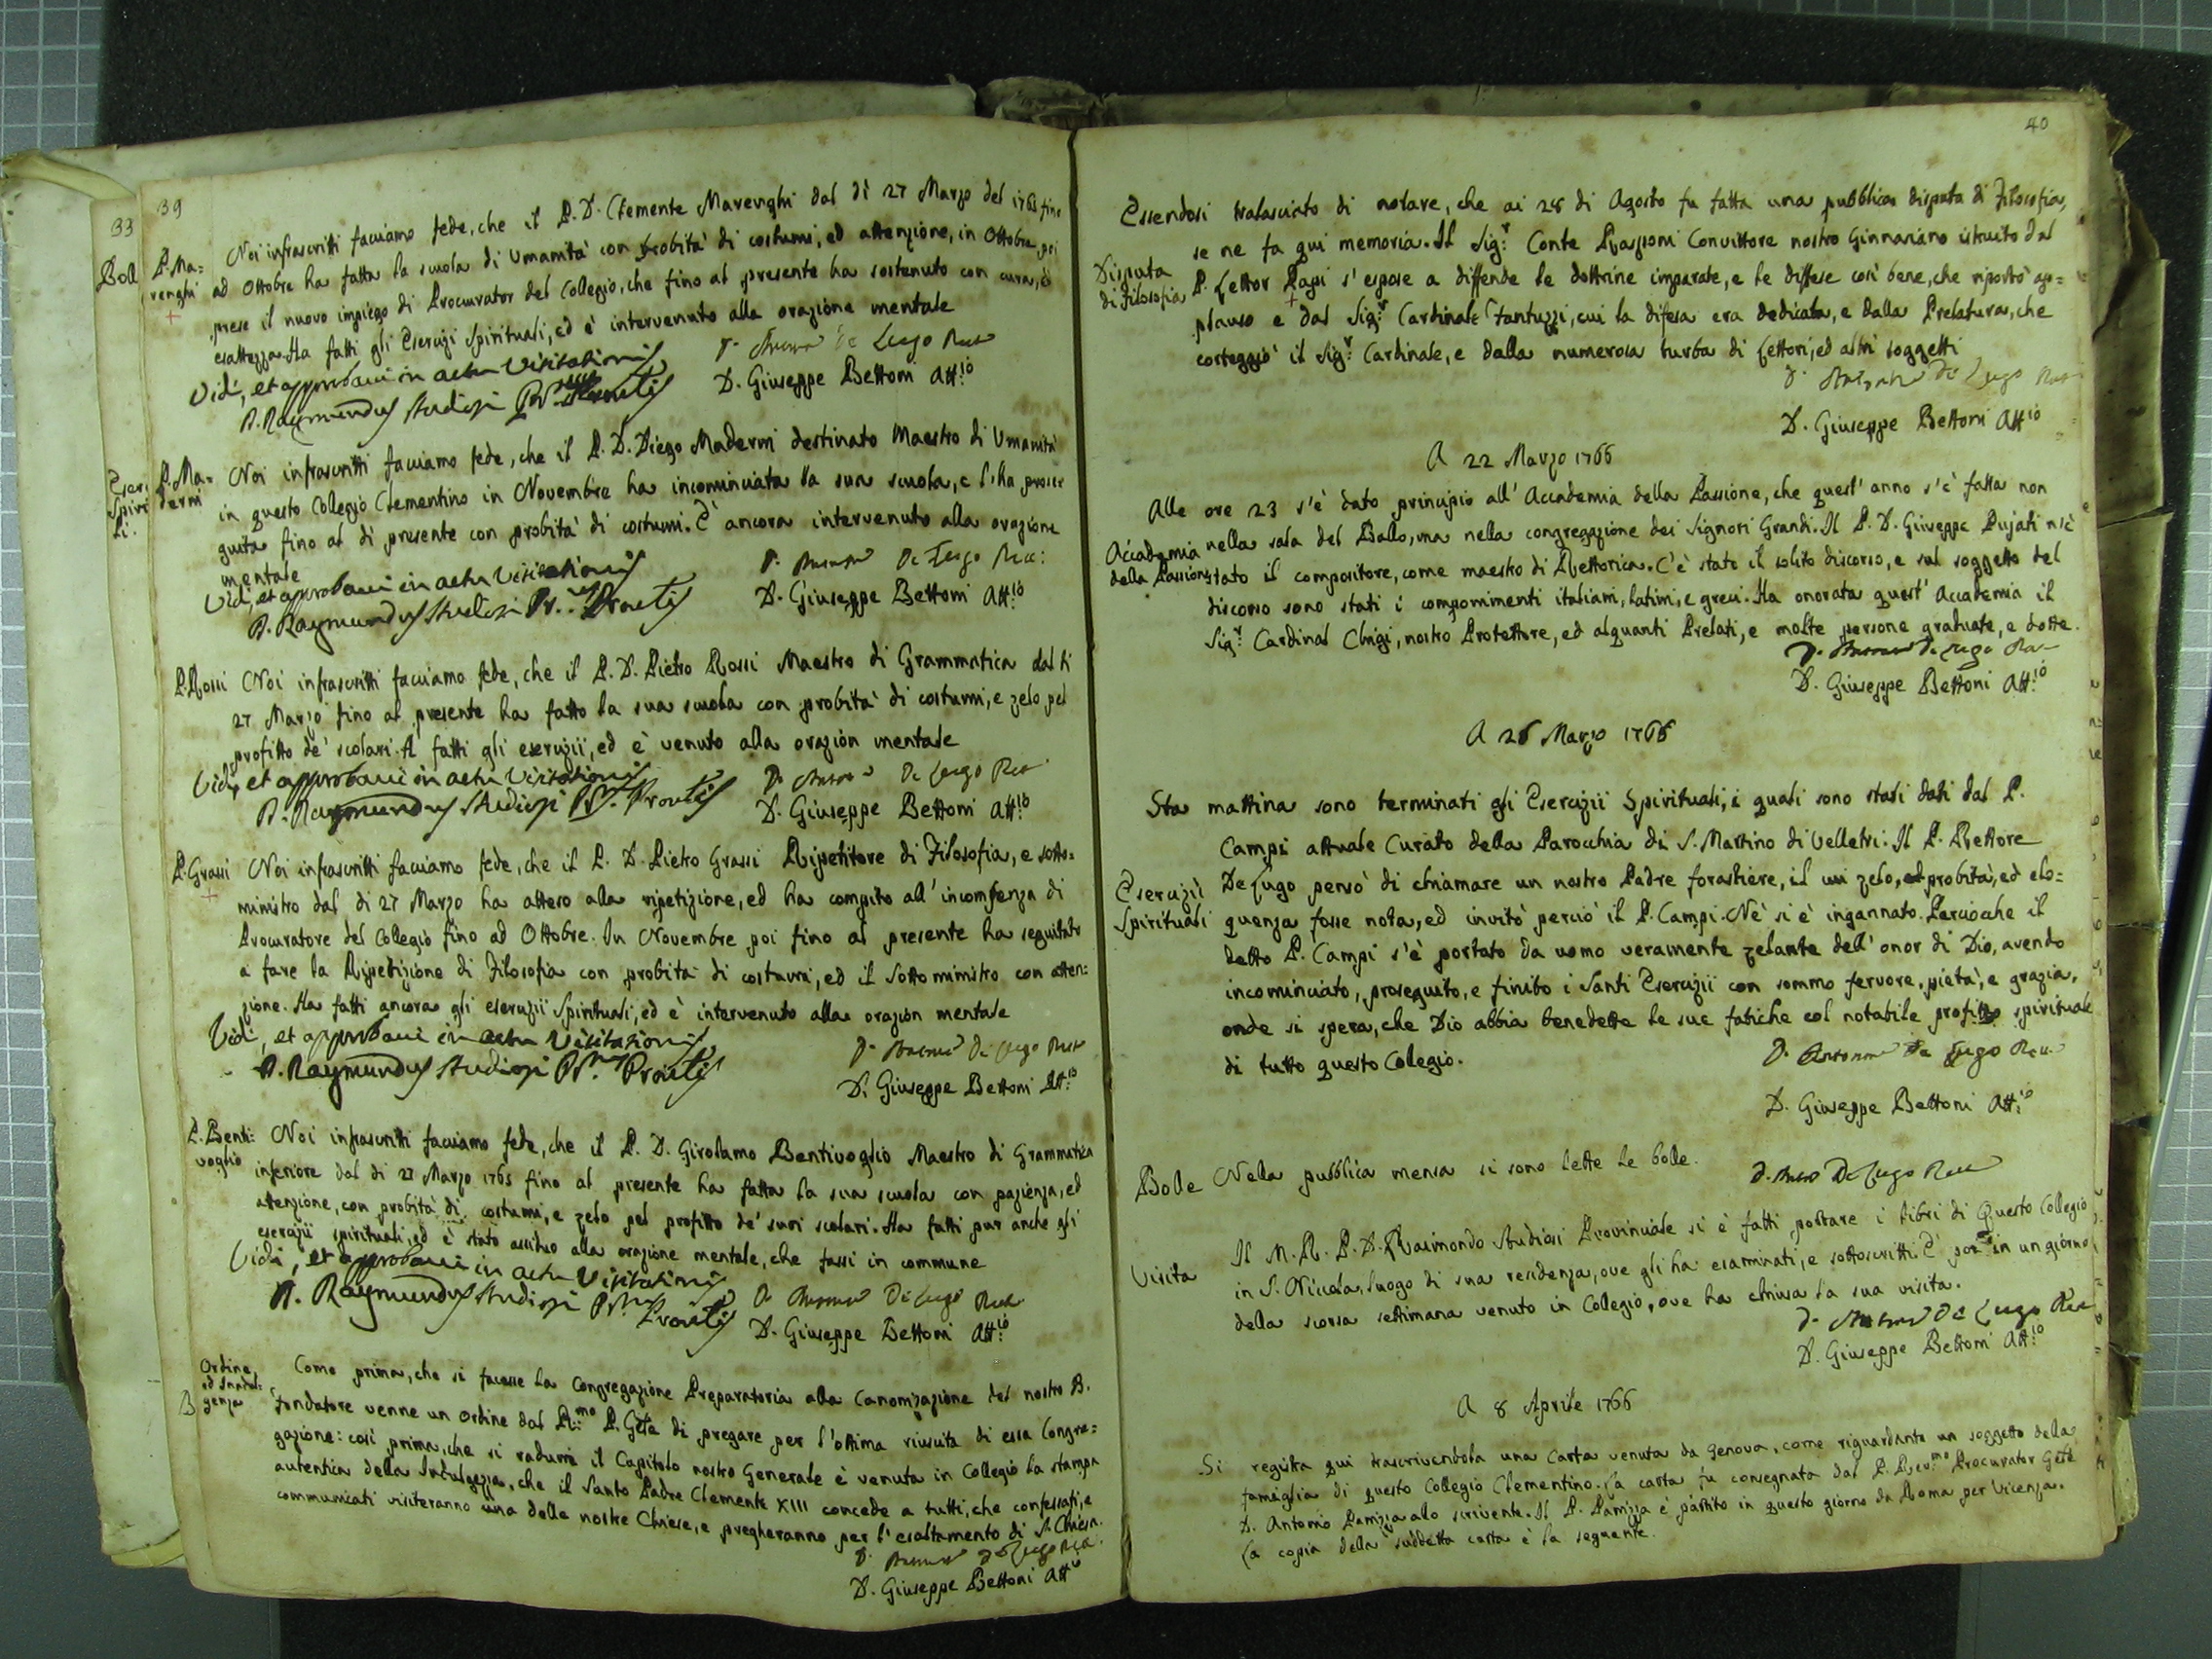 39
33
Boll
Eser.
Spiri
li.
B
P. Ma=
renghi
Noi infrascritti facciamo fede, che il P. D. Clemente Marenghi dal dì 27 Marzo del 1765 fino
ad Ottobre ha fatta la scuola di Umanità con probità di costumi, ed attenzione, in Ottobre poi
prese il nuovo impiego di Procurator del Collegio, che fino al presente ha sostenuto con cura, ed
esattezza. Ha fatti gli Esercizi Spirituali, ed è intervenuto alla orazione mentale
Vidi, et approbavi in actu Visitationis
D. Raymundus Studiosi
D. De Lugo Rett
D. Giuseppe Bettoni Att.io
P. Ma=
derni
Noi infrascritti facciamo fede, che il P. D. Diego Maderni destinato Maestro di Umanità
in questo Collegio Clementino in Novembre ha incominciata la sua scuola, e l'ha prose=
guita fino al dì presente con probità di costumi. È ancora intervenuto alla orazione
mentale
Vidi, et approbavi in actu Visitationis
D. Raymundus Studiosi
D. De Lugo Rett:
D. Giuseppe Bettoni Att.io
P. Rossi
Noi infrascritti facciamo fede, che il P. D. Pietro Rossi Maestro di Grammatica dal li
27 Marzo fino al presente ha fatto la sua scuola con probità di costumi, e zelo pel
profitto de' scolari. A fatti gli esercizii, ed è venuto alla orazion mentale
Vidi, et approbavi in actu Visitationis
D. Raymundus Studiosi
D. De Lugo Rett
D. Giuseppe Bettoni Att.io
P. Grassi
Noi infrascritti facciamo fede, che il P. D. Pietro Grassi Ripetitore di Filosofia, e sotto=
ministro dal dì 27 Marzo ha atteso alla ripetizione, ed ha compito all'incombenza di
Procuratore del Collegio fino ad Ottobre. In Novembre poi fino al presente ha seguitato
a fare la Ripetizione di Filosofia con probità di costumi, ed il sotto ministro con atten=
zione. Ha fatti ancora gli esercizii Spirituali, ed è intervenuto alla orazion mentale
Vidi, et approbavi in actu Visitationis
D. Raymundus Studiosi
D. De Lugo Rett
D. Giuseppe Bettoni Att.io
P. Benti=
voglio
Noi infrascritti facciamo fede, che il P. D. Girolamo Bentivoglio Maestro di Grammatica
inferiore dal dì 27 Marzo 1765 fino al presente ha fatta la sua scuola con pazienza, ed
attenzione, con probità di costumi, e zelo pel profitto de' suoi scolari. Ha fatti pur anche gli
esercizii spirituali, ed è stato assiduo alla orazione mentale, che fassi in commune
Vidi, et approbavi in actu Visitationis
D. Raymundus Studiosi
D. De Lugo Rett
D. Giuseppe Bettoni Att.io
Ordine,
ed Indul=
genza
Come prima, che si facesse la Congregazione Preparatoria alla Canonizazione del nostro B.
fondatore venne un ordine dal R.mo P. Gñle di pregare per l'ottima riuscita di essa Congre=
gazione: così prima, che si raduni il Capitolo nostro Generale è venuta in Collegio la stampa
autentica della Indulgenza, che il Santo Padre Clemente XIII concede a tutti, che confessati, e
communicati visiteranno una delle nostre Chiese, e pregheranno per l'esaltamento di S. Chiesa.
D. De Lugo Rett.
D. Giuseppe Bettoni Att.io
40
Essendosi tralasciato di notare, che ai 28 di Agosto fu fatta una pubblica disputa di Filosofia,
se ne fa qui memoria. Il Sig.r Conte Rasponi Convittore nostro Ginnasiano istruito dal
Disputa
di Filosofia
P. Lettor Papi s'espose a diffende le dottrine imparate, e le diffese così bene, che riportò ap=
plauso e dal Sig.r Cardinale Fantuzzi, cui la difesa era dedicata, e dalla Prelatura, che
corteggiò il Sig.r Cardinale, e dalla numerosa turba di Lettori, ed altri soggetti
D. De Lugo Rett
D. Giuseppe Bettoni Att.io
A 22 Marzo 1766
Alle ore 23 s'è dato principio all'Accademia della Passione, che quest'anno s'è fatta non
Accademia
della Passione
nella sala del Ballo, ma nella congregazione dei Signori Grandi. Il P. D. Giuseppe Pujati n'è
stato il compositore, come maestro di Rettorica. C'è stato il solito discorso, e sul soggetto del
discorso sono stati i componimenti italiani, latini, e greci. Ha onorata quest'Accademia il
Sig.r Cardinal Chigi, nostro Protettore, ed alquanti Prelati, e molte persone graduate, e dotte.
D. De Lugo Rett
D. Giuseppe Bettoni Att.io
A 26 Marzo 1766
Sta mattina sono terminati gli Esercizii Spirituali, i quali sono stati dati dal P.
Campi attuale Curato della Parocchia di S. Martino di Velletri. Il P. Rettore
Esercizii
Spirituali
De Lugo pensò di chiamare un nostro Padre forastiere, il cui zelo, probità, ed elo=
quenza fosse nota, ed invitò perciò il P. Campi. Nè si è ingannato. Perciocche il
detto P. Campi s'è portato da uomo veramente zelante dell'onor di Dio, avendo
incominciato, proseguito, e finito i Santi Esercizii con sommo fervore, pietà, e grazia,
onde si spera, che Dio abbia benedette le sue fatiche col notabile profitto spirituale
di tutto questo Colegio.
D. Antonio De Lugo Rett.
D. Giuseppe Bettoni Att.io
Bolle
Nella pubblica mensa si sono lette le bolle.
D. De Lugo Rett
Visita
Il M. R. P. D. Raimondo Studiosi Provinciale si è fatti portare i libri di Questo Collegio
in S. Niccola, luogo di sua residenza, ove gli ha esaminati, e sottoscritti. È poi in un giorno
della scorsa settimana venuto in Collegio, ove ha chiusa la sua visita.
D. De Lugo Rett
D. Giuseppe Bettoni Att.io
A 8 Aprile 1766
Si registra qui trascrivendola una Carta venuta da Genova, come riguardante un soggetto della
famiglia di questo Collegio Clementino. La carta fu consegnata dal P. Rev.mo Procurator Gñle
D. Antonio Panizza allo scrivente. Il P. Panizza è partito in questo giorno da Roma per Vicenza.
La copia della suddetta carta è la seguente.